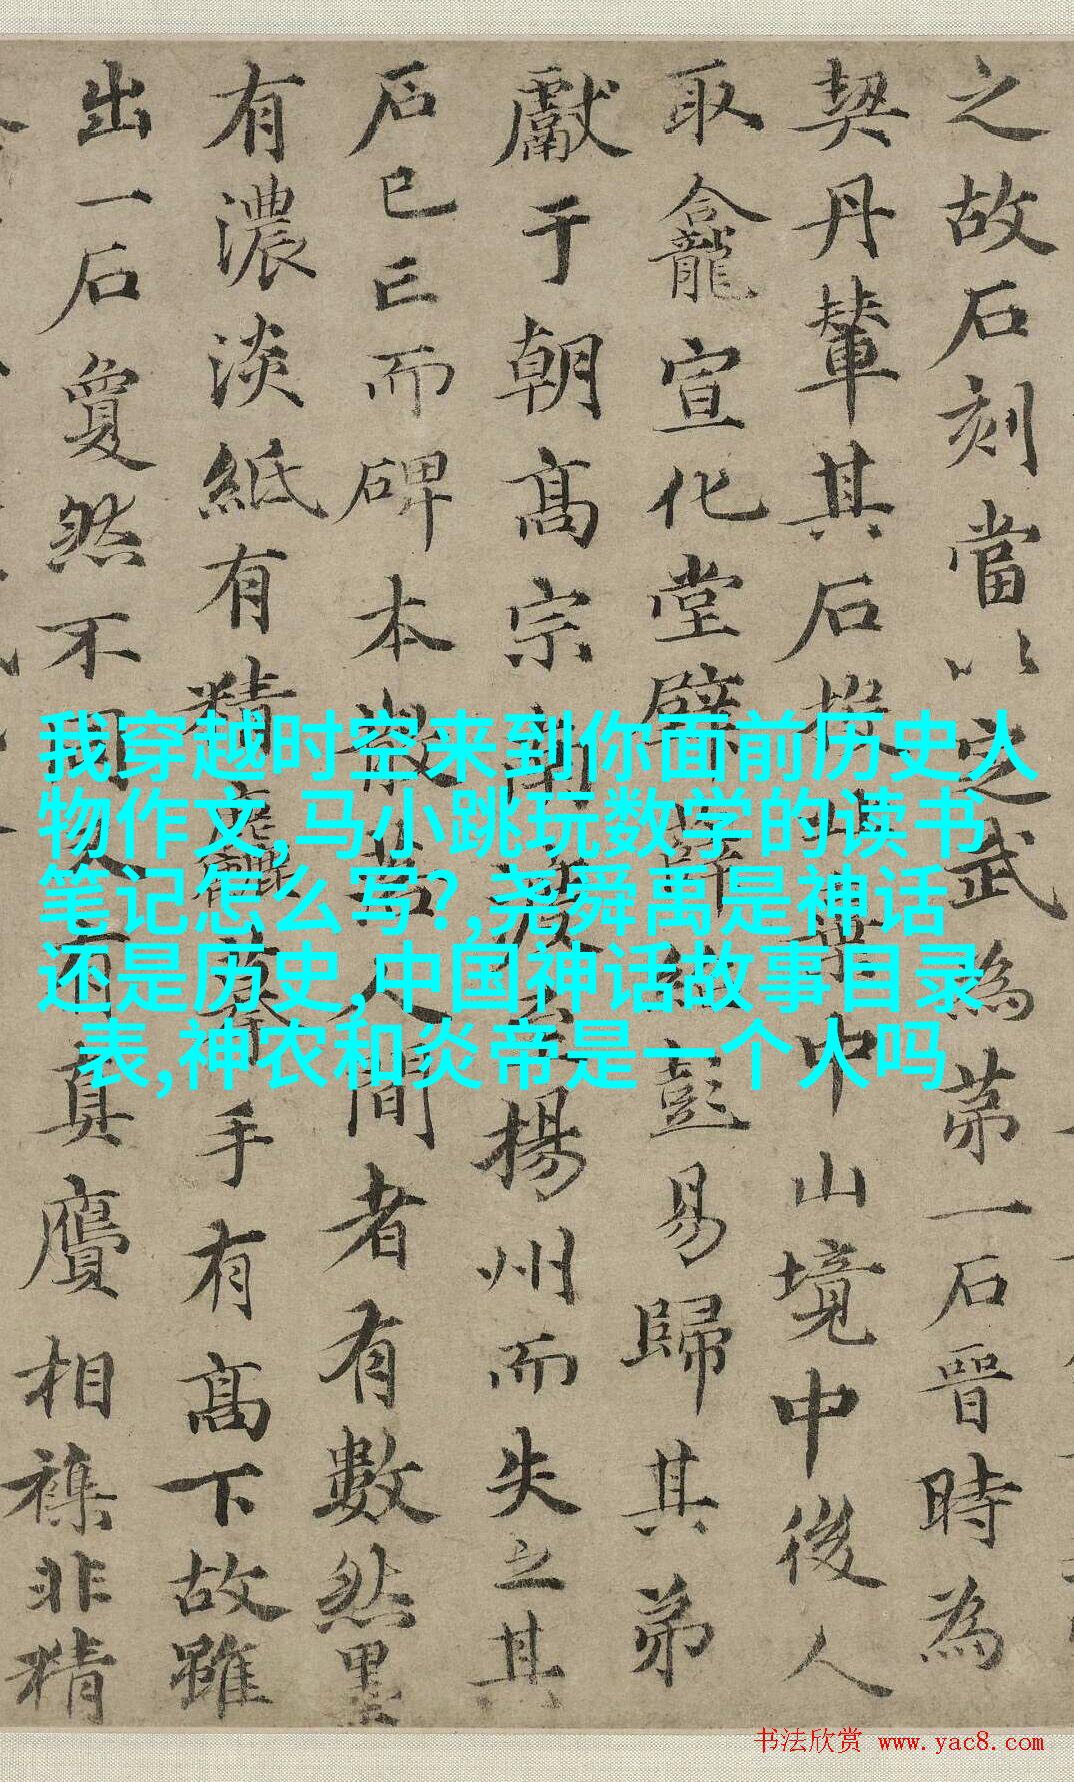 之故石刻當以定武為苐一石晉時為
契丹輦其石棄中山境中後人
取龕宣化堂壁薛紹彭易歸其弟
獻于朝高宗南渡揚州而失之其
石已亡而碑本散落人間者有數然墨
有濃淡紙有精麤摹手有高下故雖
出一石夐然不同人有真贋相襍非精
我穿越时空来到你面前历史人
物作文,马小跳玩数学的读书
笔记怎么写?,尧舜禹是神话
还是历史,中国神话故事目录
表,神农和炎帝是一个人吗
书法欣赏 www.yac8.com